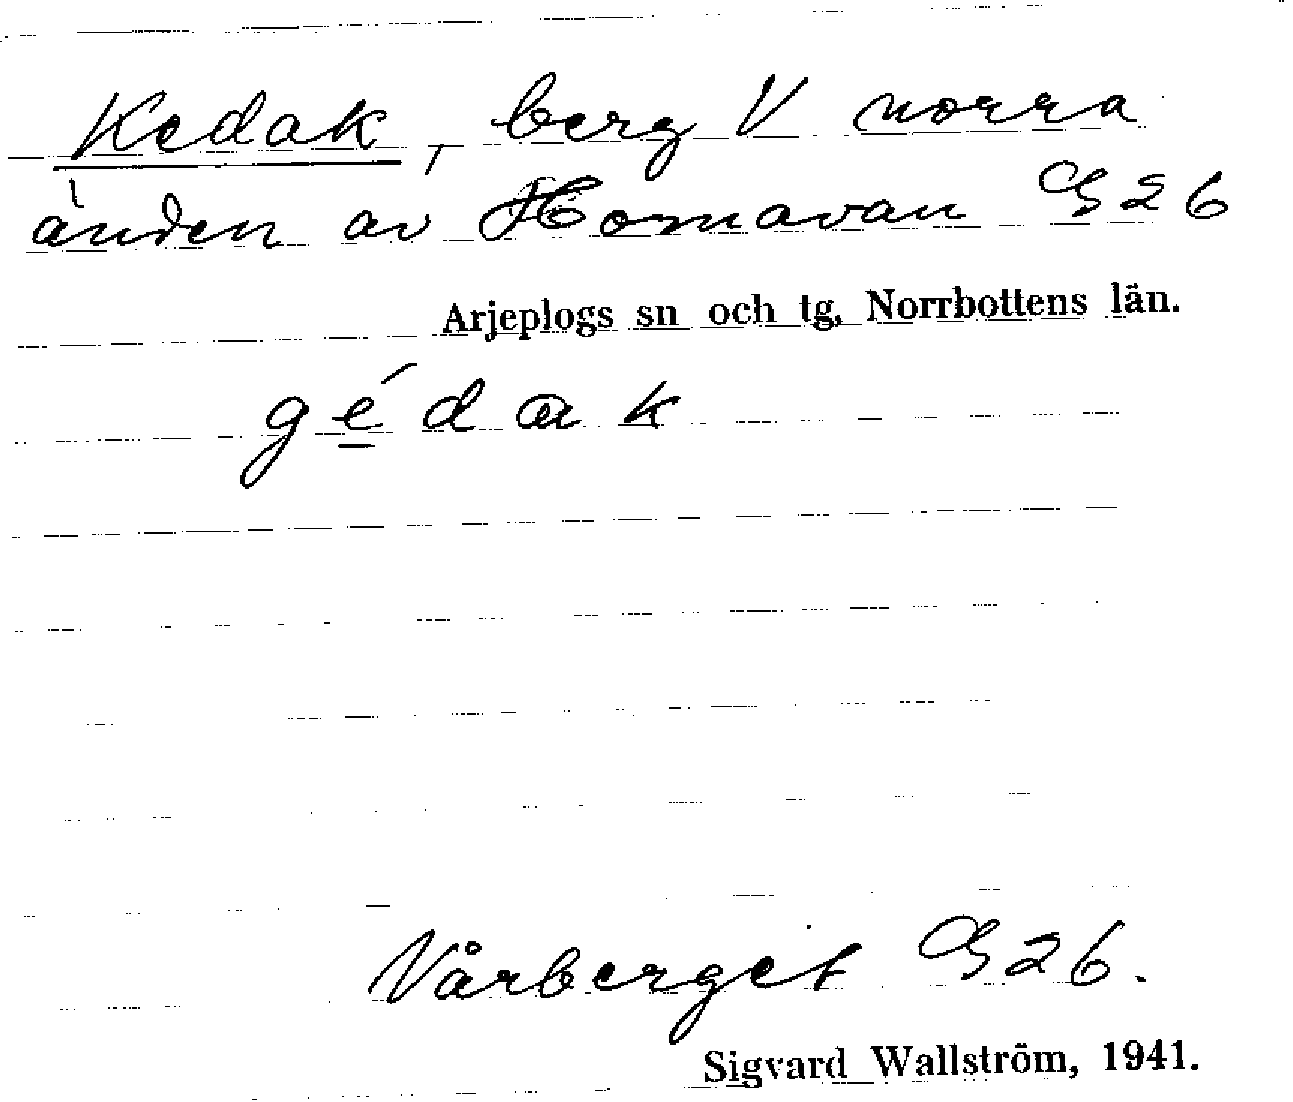 Kedak, berg V norra
änden av Hornavan G26
Arjeplogs sn och tg, Norrbottens län.
gédak
Vårberget G26.
Sigvard Wallström, 1941.